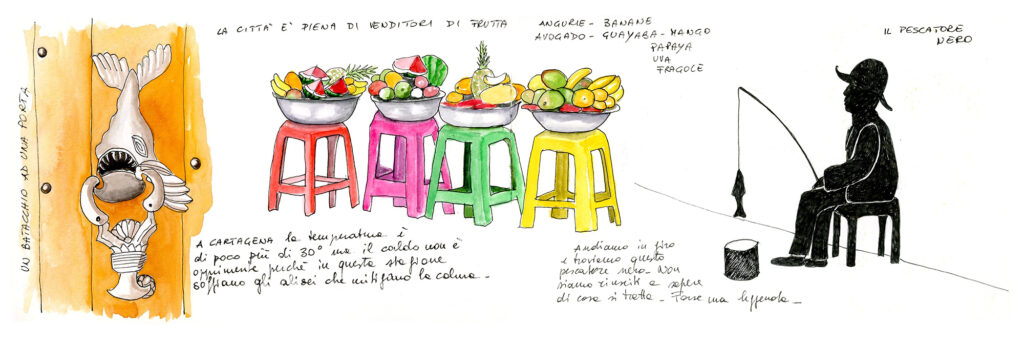 UN BATACCHIO AD UNA PORTA
LA CITTA' E' PIENA DI VENDITORI DI FRUTTA
ANGURIE - BANANE
AVOGADO - GUAYABA - MANGO
PAPAYA
UVA
FRAGOLE
IL PESCATORE
NERO
A CARTAGENA la temperatura è
di poco più di 30° ma il caldo non è
opprimente perché in questa stagione
soffiano gli alisei che mitigano la calma -
Andiamo in giro
e troviamo questo
pescatore nero - Non
siamo riusciti a sapere
di cosa si tratta - Forse una leggenda -